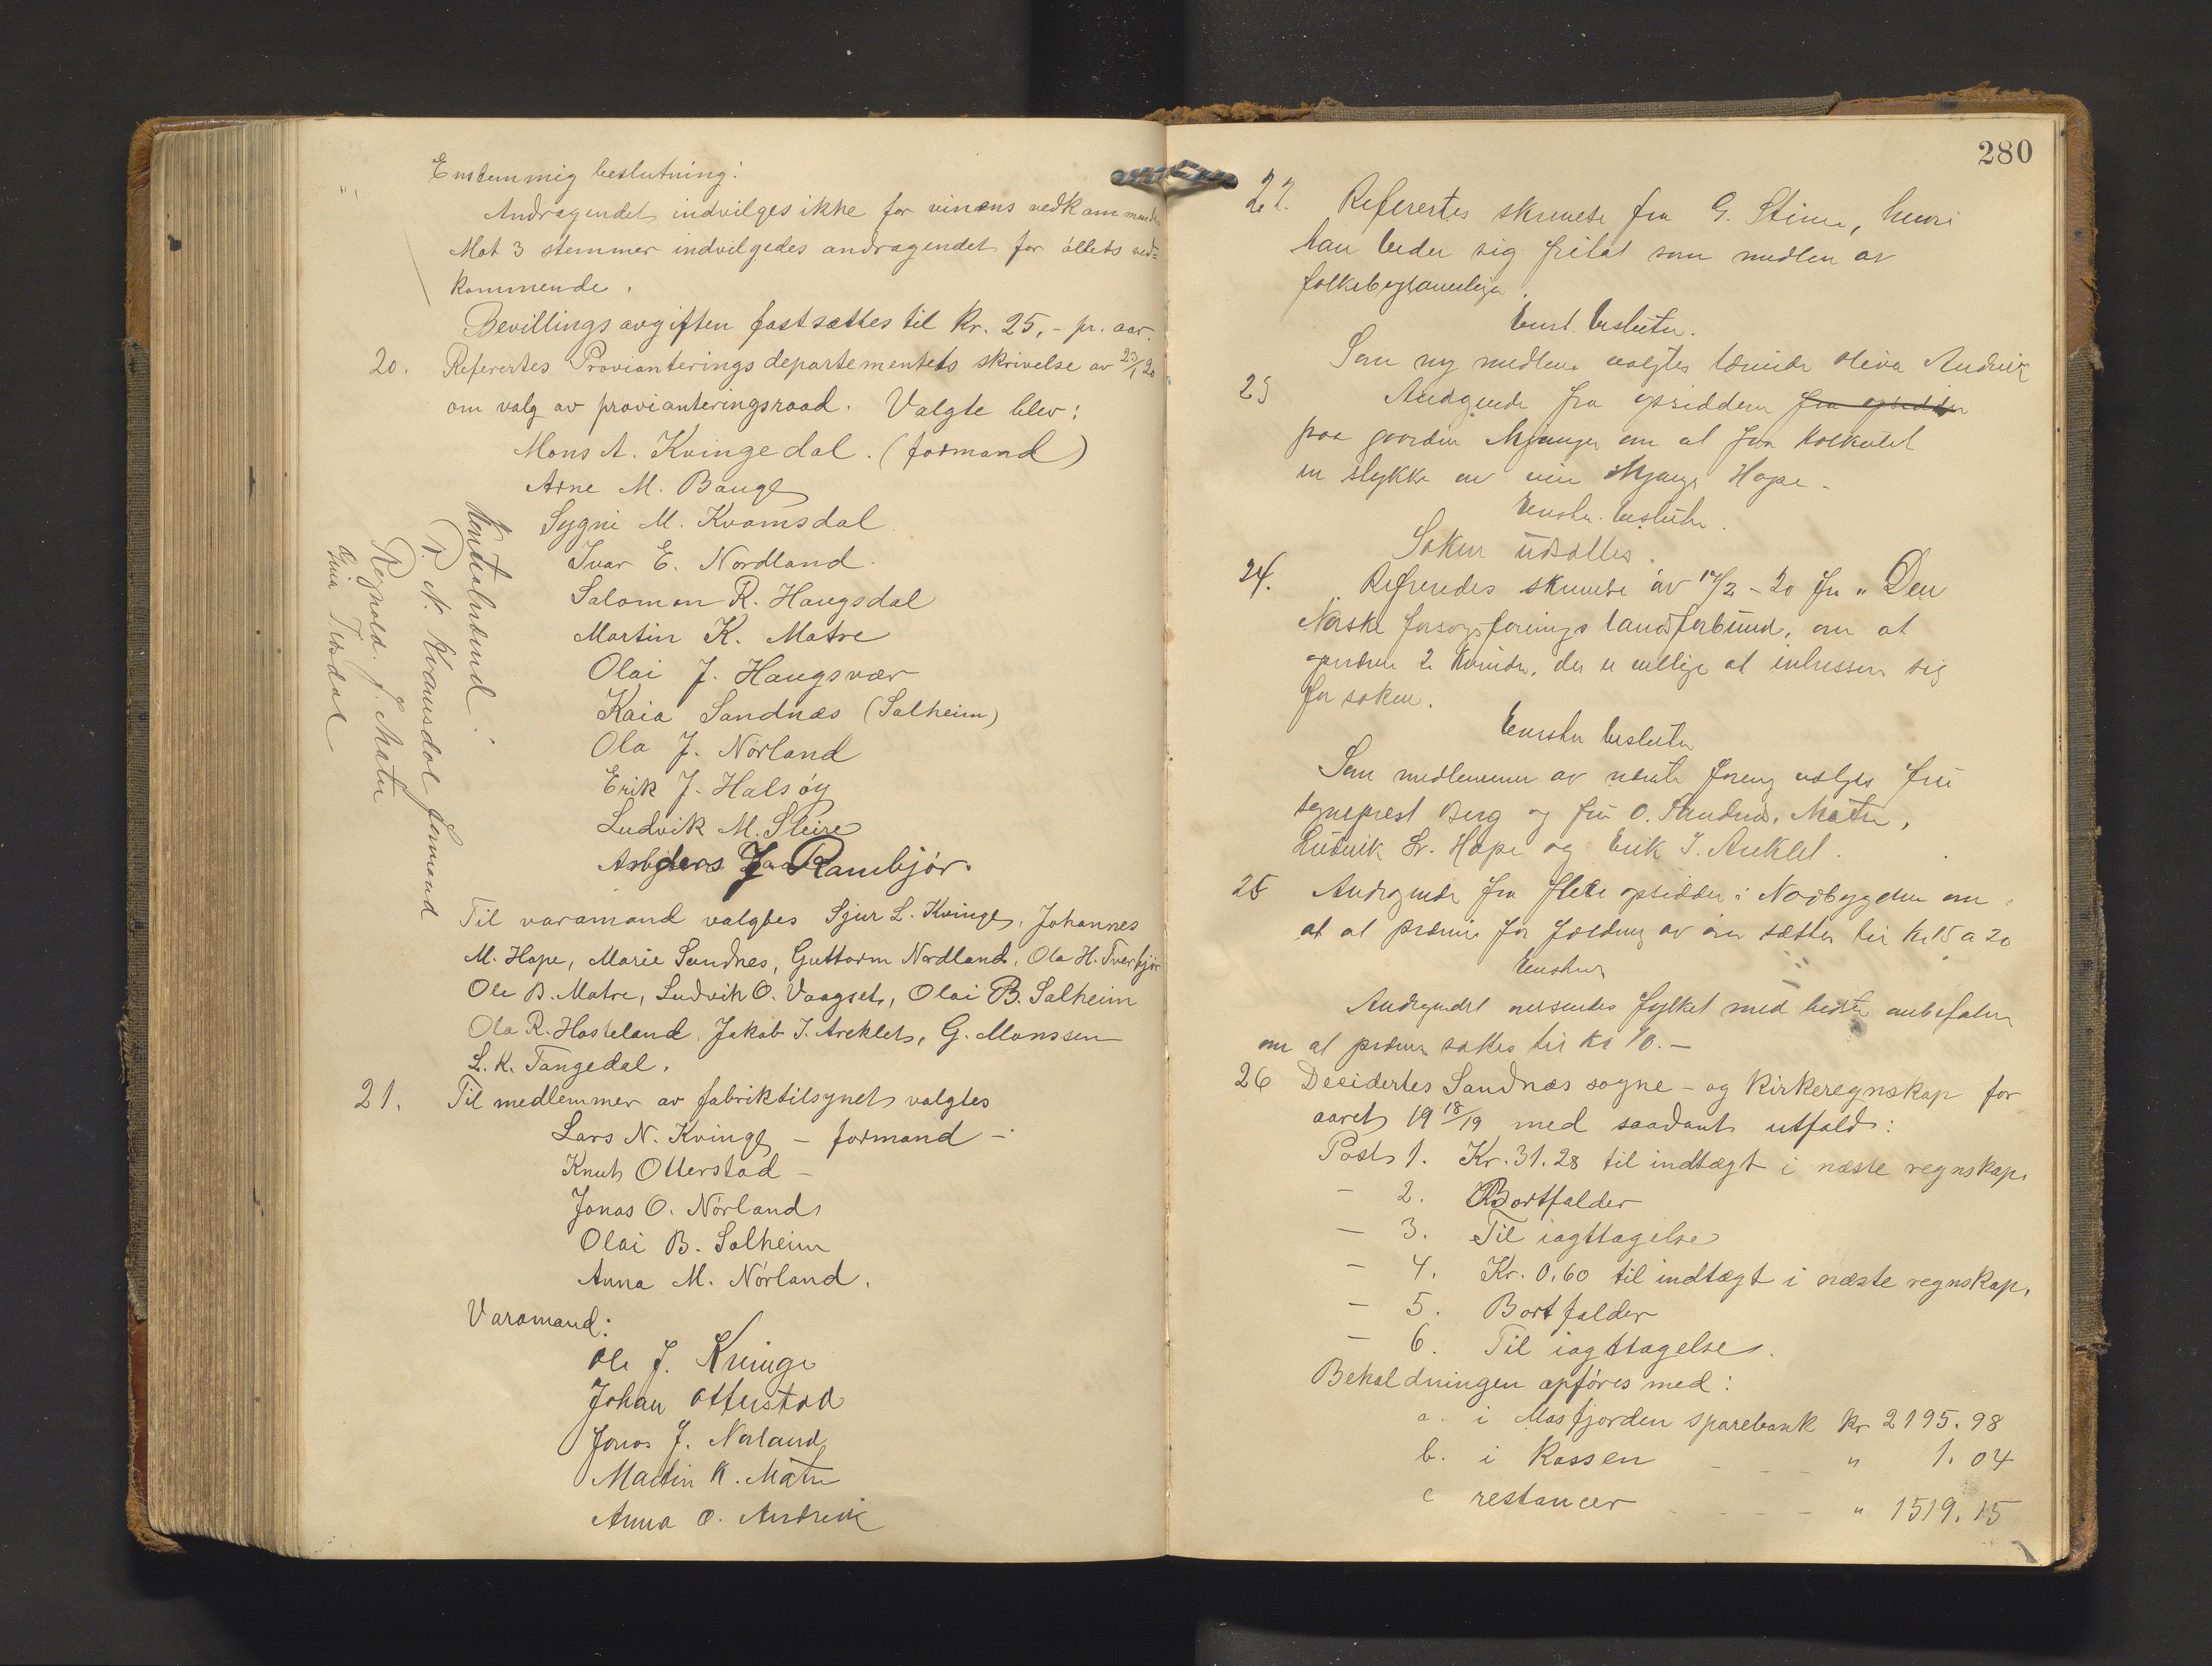 Enstemmig beslutning:
Andragendet indvilges ikke for vinens vedkommende
Mot 3 stemmer indvilgedes andragendet for øllets ved=
kommende.
Bevillingsavgiften fastsættes til kr. 25,- pr. aar.
20. Referertes Provianteringsdepartementets skrivelse av 23/1 20
om valg av provianteringsraad. Valgte blev:
Mons A. Kvingedal. (formand)
Arne M. Bauge
Sygni M. Kvamsdal
Ivar E. Nordland.
Salomon R. Haugsdal
Martin K. Matre
Olai J. Haugsvær
Kaia Sandnæs (Solheim)
Ola J. Nørland
Erik J. Halsøy
Ludvik M. Sleire
J. Rambjør.
Til varamænd valgtes Sjur L. Kvinge, Johannes
M. Hope, Marie Sandnes, Guttorm Nordland, Ola H. Tverbjør
Ole B. Matre, Ludvik O. Vaagset, Olai B. Solheim
Ola R. Hosteland, Jakob I. Areklet, G. Monssen
L. K. Tangedal.
Reynold. J. Matre
21. Til medlemmer av fabriktilsynet valgtes
Lars N. Kvinge - formand -
Knut Otterstad -
Jonas O. Nørland
Olai B. Solheim
Anna M. Nørland.
Varamænd:
Ole J. Kvinge
Johan Otterstad
Jonas J. Nørland
Martin K. Matre
Anna O. Andvik
280
22. Referertes skrivelse fra G. Steine, hvori
han beder sig fritat som medlem av
Enst. beslutn.
Som ny medlem valgtes lærerinde Oliva Andvik
23 Andragende fra opsiddere fra opsidder
paa gaarden Mjanger om at faa
en stykke av vei Mjanger Hope.
Enstem. beslutn.
Saken utsattes.
24. Referertes skrivelse av 12/2 - 20 fra "Den
Norske forsorgsforenings landsforbund, om at
2 kvinder, der er villige at interessere sig
for saken.
Enstem beslutn
Som medlemmer av nævnte forening valges fru
sogneprest Berg og fru O. Sandnæs, Matre,
Ludvik Hope og Erik I. Areklet.
25 Andragende fra flere opsiddere i Nordbygden om
at præmie for fældning av ørn sættes til kr 15 a 20
Enstem
Andragendet oversendes fylket med bedste anbefaling
om at præmien sættes til kr 10.-
26 Decidertes Sandnæs sogne- og kirkeregnskap for
aaret 19 18/19 med saadant utfald:
Post 1. Kr. 31.28 til indtægt i næste regnskap.
- 2. Bortfalder
- 3. Til iagttagelse
- 4. Kr. 0.60 til indtægt i næste regnskap.
- 5. Bortfalder
- 6. Til iagttagelse.
Beholdningen opføres med:
a. i Masfjorden sparebank kr 2195.98
b. i kassen - - - " 1.04
c restancer - - - - " 1519.15